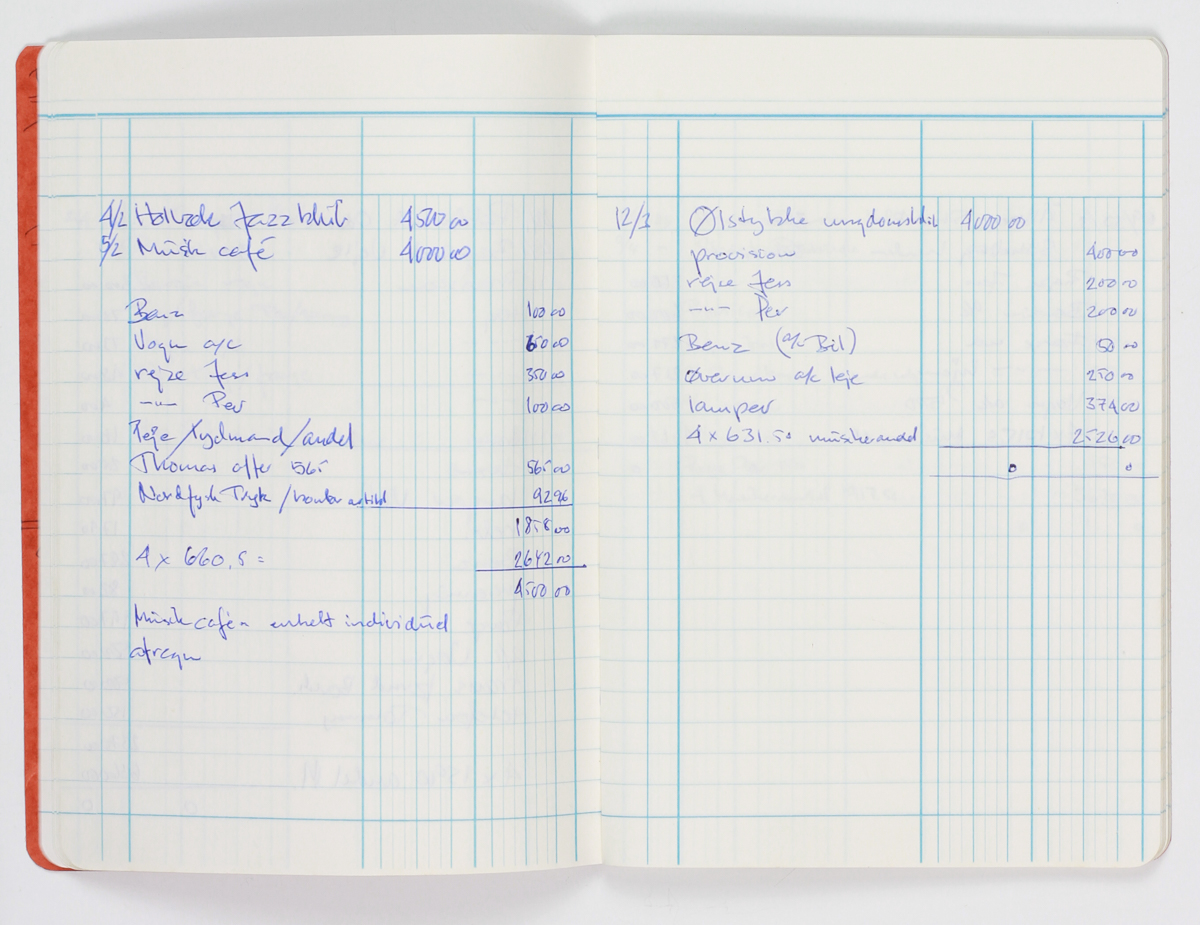 4/2 Holbæk Jazzklub 4500 00
5/2 Musik café 4000 00
Benz 100 00
Vogn a/c 650 00
rejse Jess 350 00
—"— Per 100 00
Leje/Lydmand/andel
Thomas after 565 565 00
Nordfynsk Tryk / 92 96
1858 00
4 x 660,5 = 2642 00
4500 00
Musik café = enkelt individuel
afregn
12/3 Ølstykke ungdomsklub 4000 00
provision 400 00
rejse Jess 200 00
—"— Per 200 00
Benz (a/c Bil) 50 00
øverum a/c leje 250 00
lamper 374 00
4 x 631.50 musikerandel 2526 00
0 0